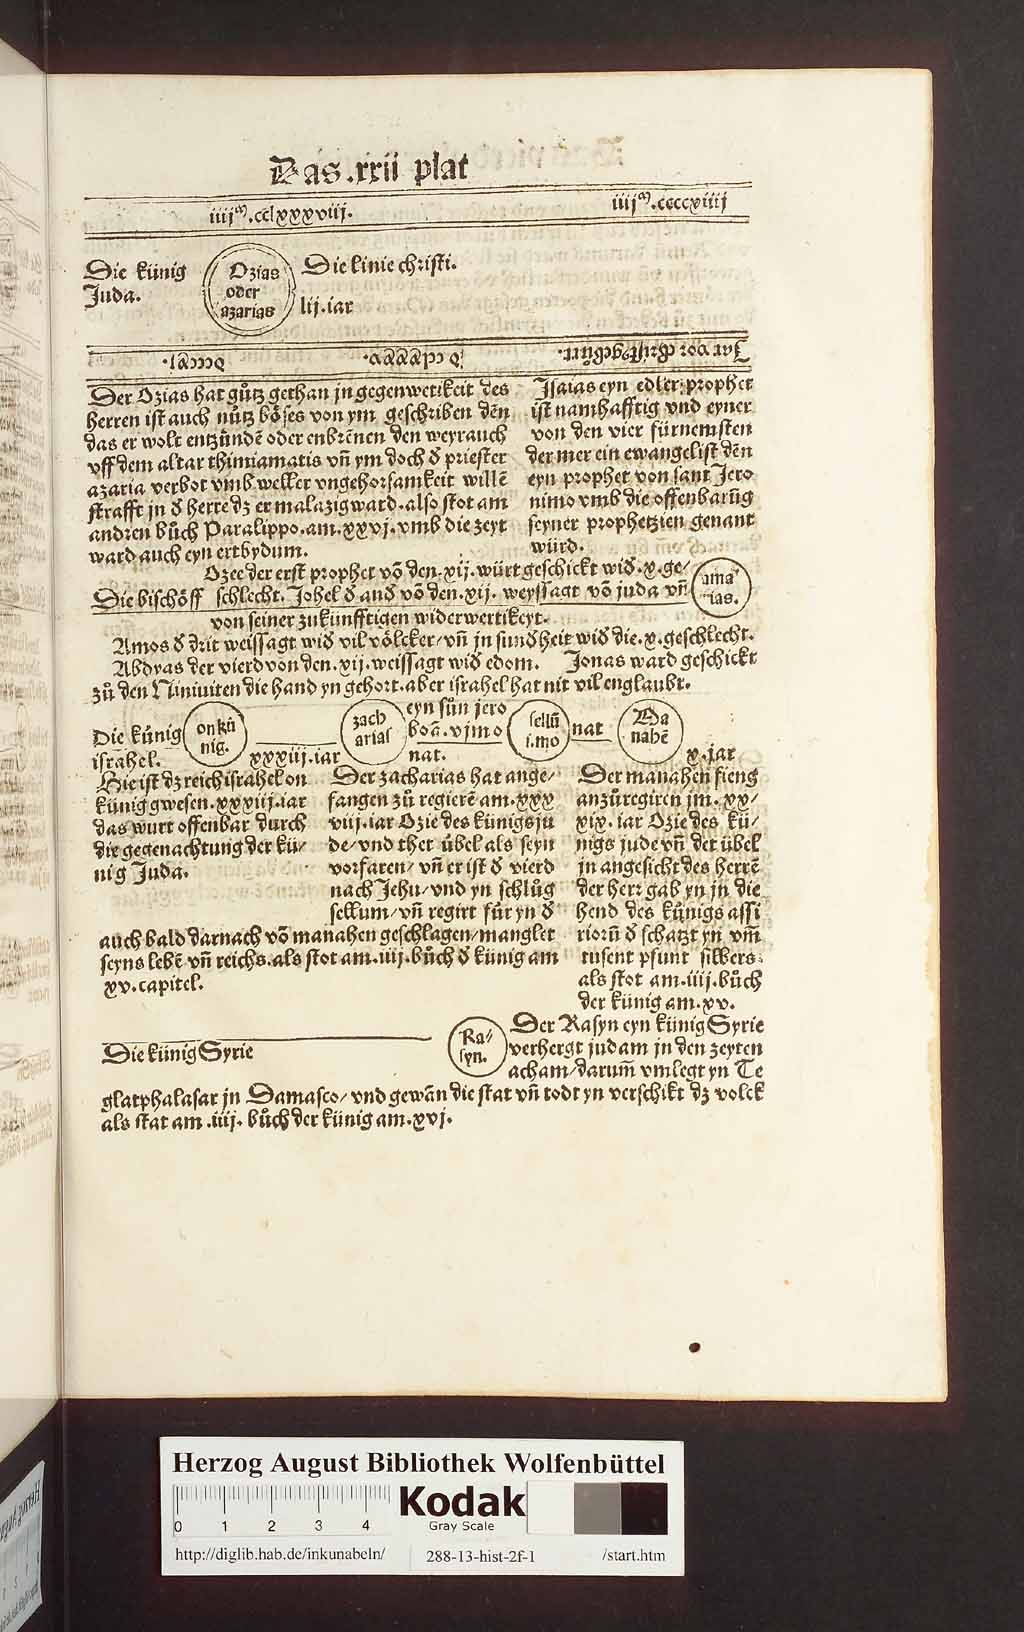 Das .xxii plat
iiijᵐ.cclxxxviij.
iiijᵐ.ccccxiiij
Die künig
Juda.
Ozias
oder
azarias
Die linie christi.
lij.iar
Jar vor cristi geburt.
Der Ozias hat gůtz gethan jn gegenwetikeit des
herren ist auch nůtz böses von ym geschriben dēn
das er wolt entzündē oder enbrēnen den weyrauch
vff dem altar thimiamatis vn̄ ym doch đ priester
azaria verbot vmb weller vngehorsamkeit willē
strafft jn đ herre dz er malazig ward.also stot am
andren bůch Paralippo.am.xxvj.vmb die zeyt
ward auch eyn ertbydum.
Jsaias eyn edler prophet
ist namhafftig vnd eyner
von den vier fürnemsten
der mer ein ewangelist dēn
eyn prophet von sant Jero
nimo vmb die offenbarūg
seyner prophetzien genant
würd.
Ozee der erst prophet vō den.xij.würt geschickt wiđ.x.ge/
Die bischöff schlecht. Johel đ anđ vō den.xij. weyssagt vō juda vn̄
von seiner zukünfftigen widerwertikeyt.
ama
ias.
Amos đ drit weissagt wiđ vil völcker/vn̄ jn sunđheit wiđ die.x.geschlecht.
Abdyas der vierd von den.xij.weissagt wiđ edom. Jonas ward geschickt
zů den Niniuiten die hand yn gehort.aber israhel hat nit vil englaubt.
Die künig
israhel.
on kü
nig.
xxxiij.iar
zach
arias
eyn sůn jero
boā.vjmo
nat.
sellū
i.mo
nat
Ma
nahē
x.jar
Hie ist dz reich israhel on
künig gwesen.xxxiij.iar
das wurt offenbar durch
die gegenachtung der kü/
nig Juda.
Der zacharias hat ange/
fangen zů regierē am.xxx
viij.iar Ozie des künigs ju
de/vnd thet übel als seyn
vorfaren/vn̄ er ist đ vierd
nach Jehu/vnd yn schlůg
sellum/vn̄ regirt für yn đ
auch bald darnach vō manahen geschlagen/manglet
seyns lebē vn̄ reichs.als stot am.iiij.bůch đ künig am
xv.capitel.
Der manahen fieng
anzůregiren jm.xx/
xix.iar Ozie des kü/
nigs jude vn̄ det übel
jn angesicht des herrē
der herr gab yn jn die
hend des künigs assi
riorū đ schatzt yn vm̄
tusent pfunt silbers.
als stot am.iiij.bůch
der künig am.xv.
Die künig Syrie
Ra/
syn.
Der Rasyn eyn künig Syrie
verhergt judam jn den zeyten
acham/darum̄ vmlegt yn Te
glatphalasar jn Damasco/vnd gewān die stat vn̄ todt yn verschikt dz volck
als stat am .iiij. bůch der künig am.xvj.
Herzog August Bibliothek Wolfenbüttel
0 1 2 3 4
Kodak
Gray Scale
http://diglib.hab.de/inkunabeln/
288-13-hist-2f-1
/start.htm